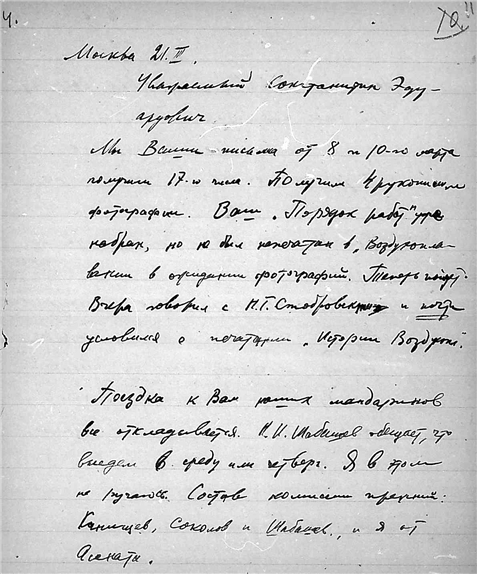 4.
Москва 21.III.
Уважаемый Константин Эду-
ардович
Мы Ваши письма от 8 и 10-го марта
получили 17-го числа. Получили и рукописи
фотографии. Ваш „Порядок работ" уже
набран, но не был напечатан в „Воздухопла-
вании в ожидании фотографий. Теперь пойдет.
Вчера говорил с Н.Г. Стобровским и почти
условился о печатании „Истории Воздухопл.".
Поездка к Вам наших мандаринов
все откладывается. Н.И. Шабашев обещает, что
выедем в среду или четверг. Я в этом
не ручаюсь. Состав комиссии прежний:
Канищев, Соколов и Шабашев, и я от
Асснати.